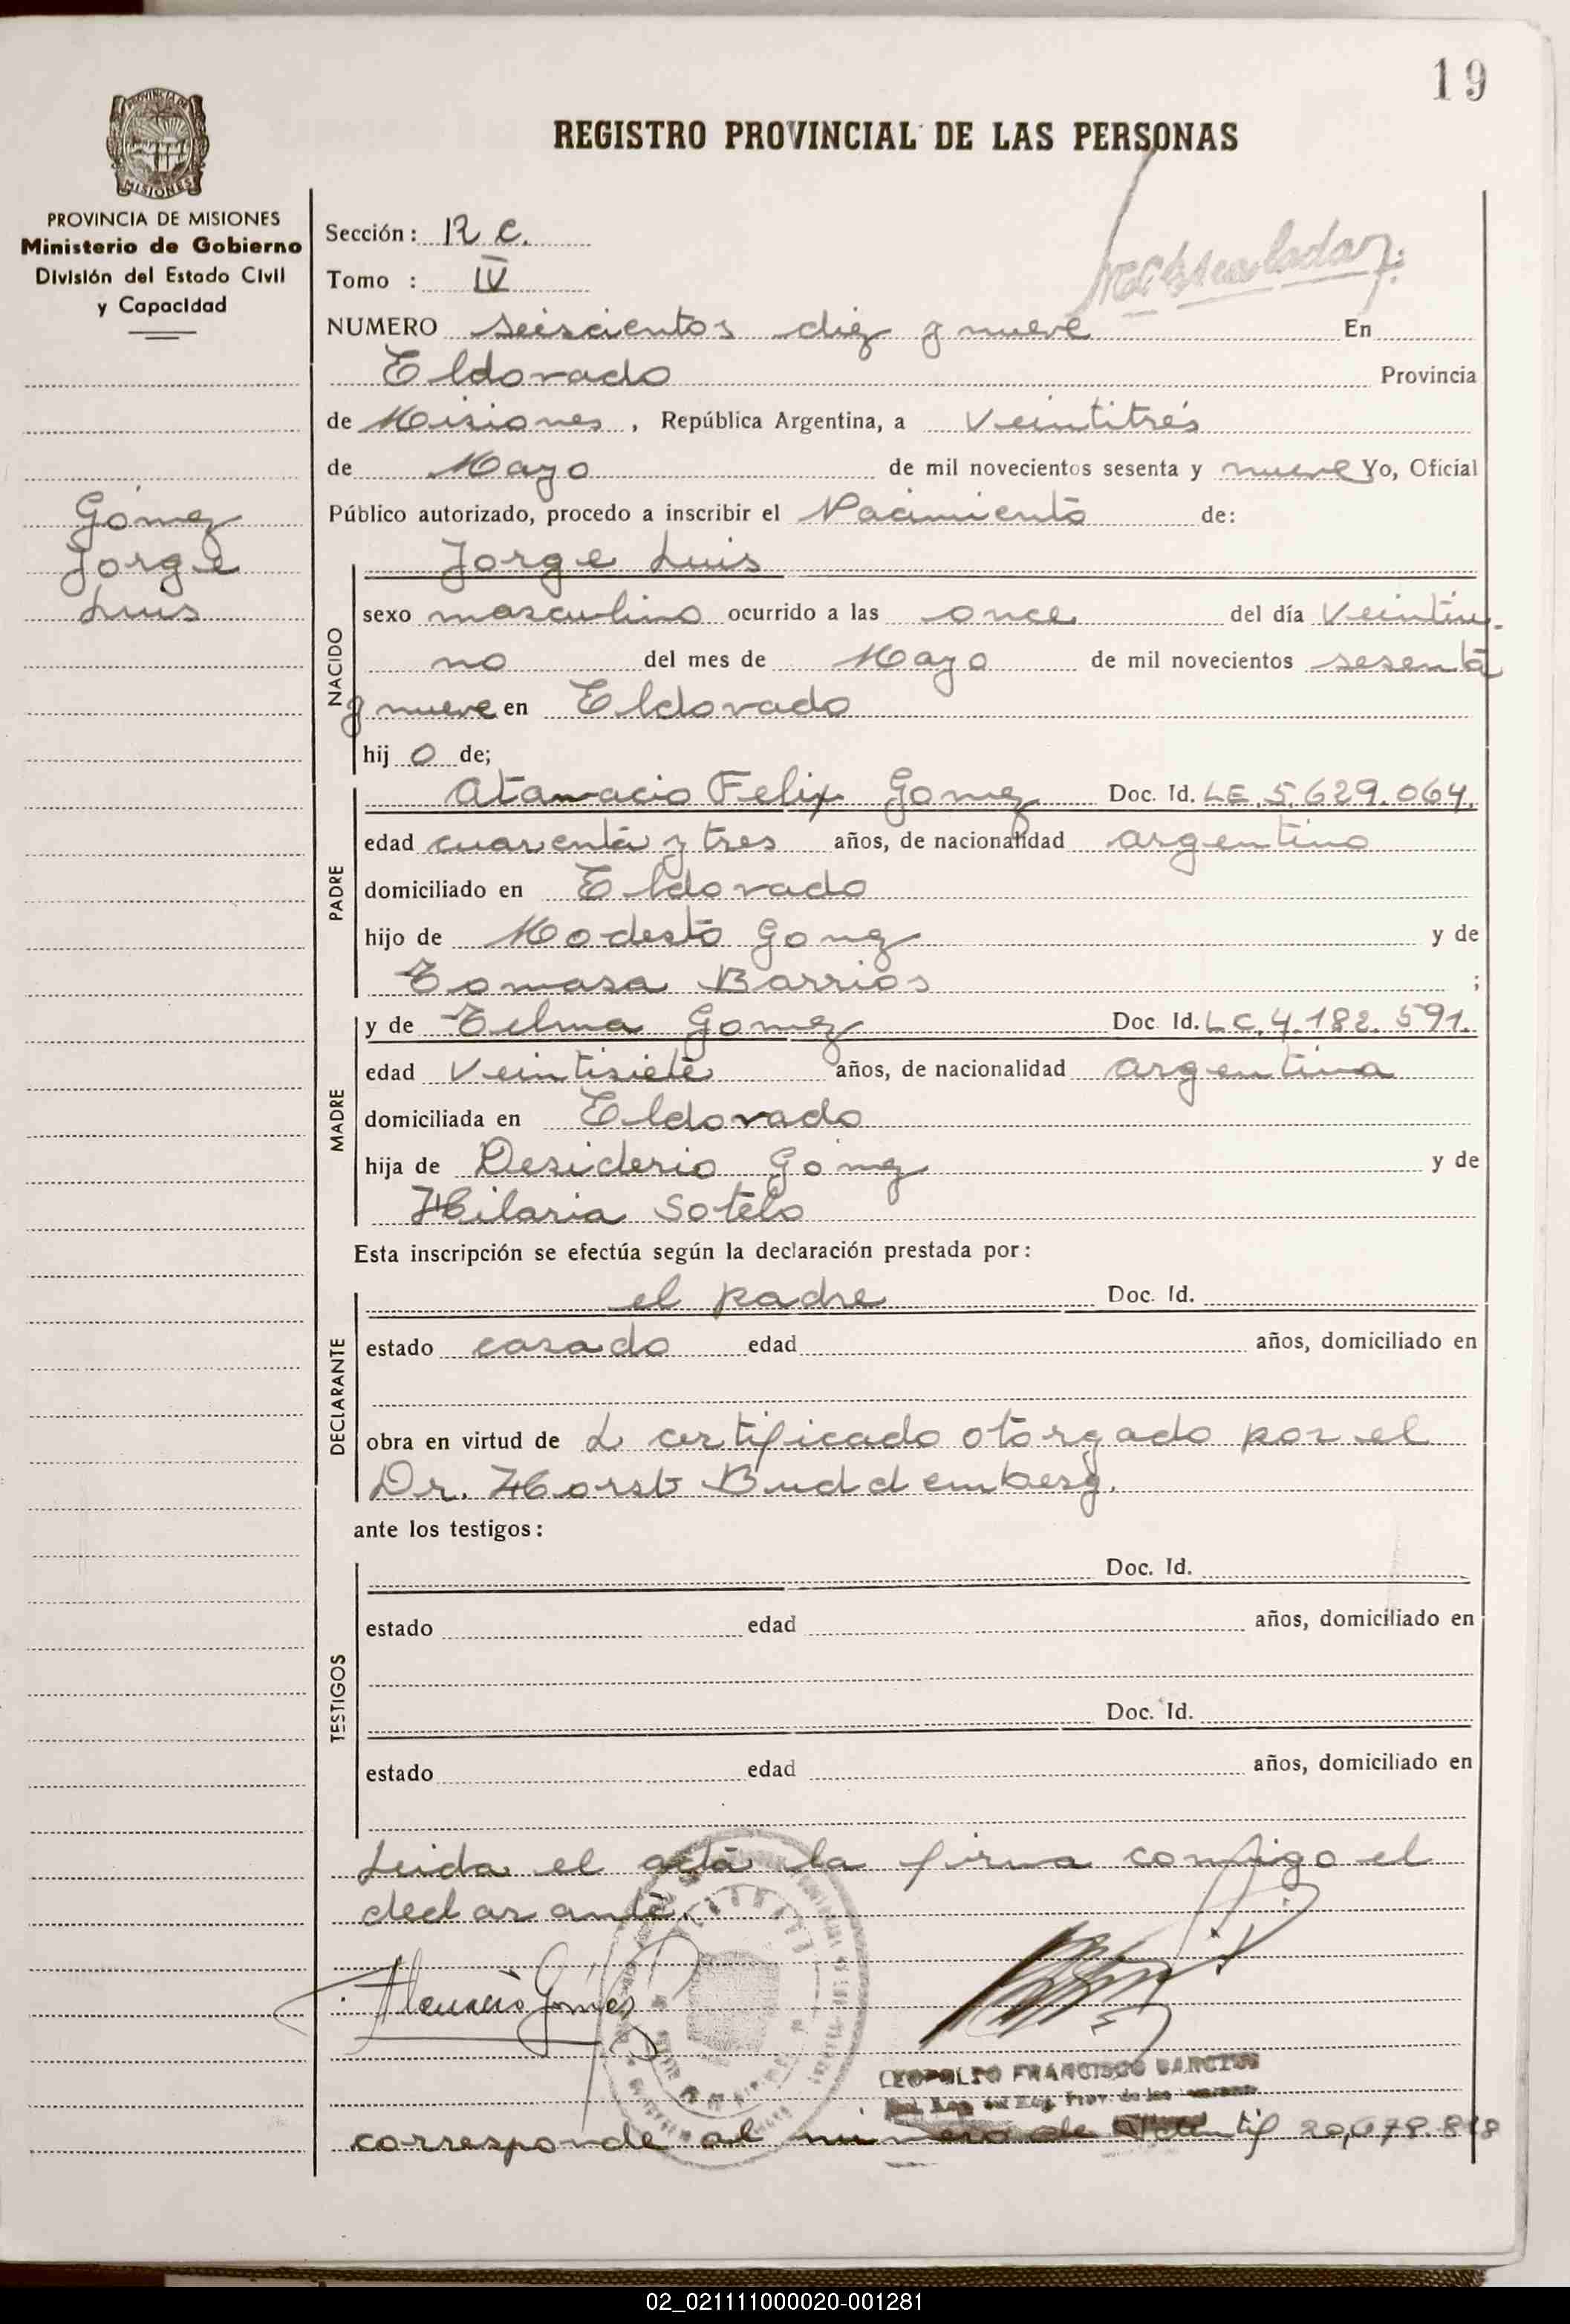 19
REGISTRO PROVINCIAL DE LAS PERSONAS
PROVINCIA DE MISIONES
Ministerio de Gobierno
División del Estado Civil
y Capacidad
Gómez
Jorge
Luis
Sección: R C.
Tomo : IV
NUMERO seiscientos diez y nueve En
Eldorado Provincia
de Misiones, República Argentina, a Veintitrés
de Mayo de mil novecientos sesenta y nueve Yo, Oficial
Público autorizado, procedo a inscribir el Nacimiento de:
Jorge Luis
NACIDO
sexo masculino ocurrido a las once del día Veintiu-
no del mes de Mayo de mil novecientos sesenta
y nueve en Eldorado
hij o de;
PADRE
Atanacio Felix Gomez Doc. Id. LE. 5.629.064.
edad cuarenta y tres años, de nacionalidad argentino
domiciliado en Eldorado
hijo de Modesto Gomez y de
Tomasa Barrios ;
MADRE
y de Telma Gomez Doc. Id. L.C. 4.182.591.
edad Veintisiete años, de nacionalidad argentina
domiciliada en Eldorado
hija de Desiderio Gómez y de
Hilaria Sotelo
Esta inscripción se efectúa según la declaración prestada por:
DECLARANTE
el padre Doc. Id.
estado casado edad años, domiciliado en
obra en virtud de L certificado otorgado por el
Dr. Horst Buddemberg.
ante los testigos:
TESTIGOS
Doc. Id.
estado edad años, domiciliado en
Doc. Id.
estado edad años, domiciliado en
Leida el acta la firma conmigo el
declarante.
Atanacio Gómez
LEOPOLDO FRANCISCO
corresponde al número de Identif
02_021111000020-001281